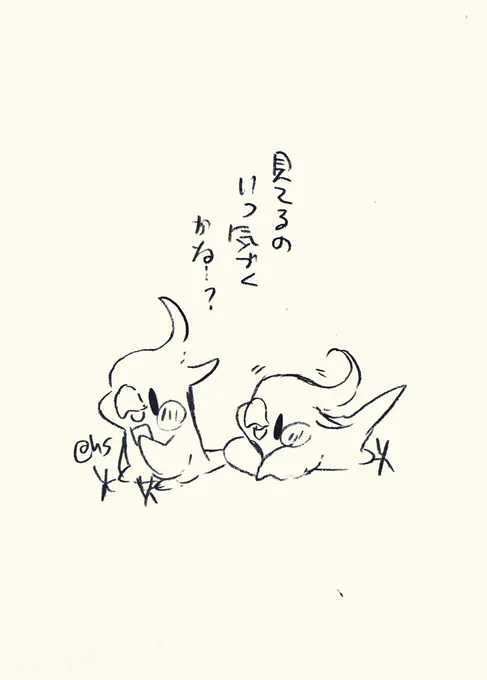 見てるの
いつ気づく
かねー?
@hs